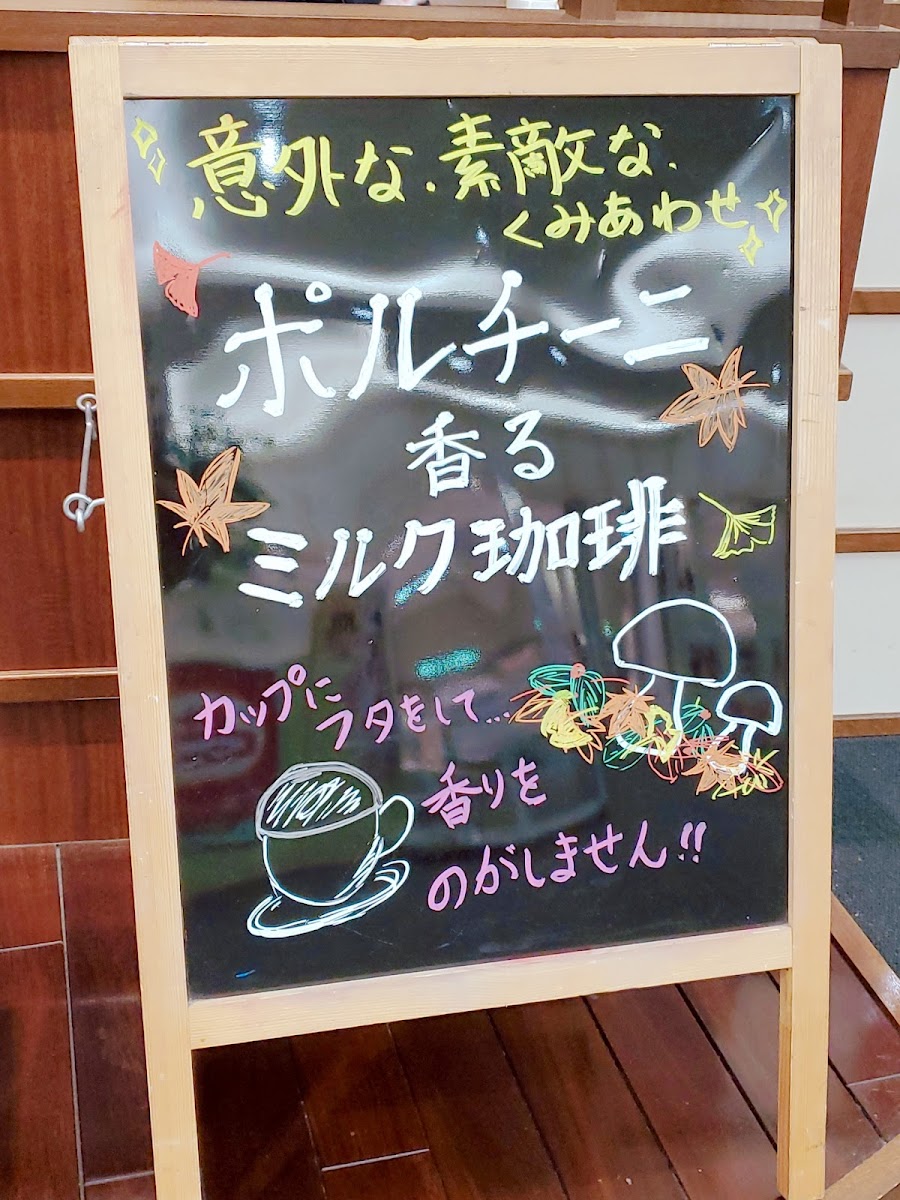 意外な、素敵な、
くみあわせ
ポルチーニ
香る
ミルク珈琲
カップに
フタをして…
香りを
のがしません!!